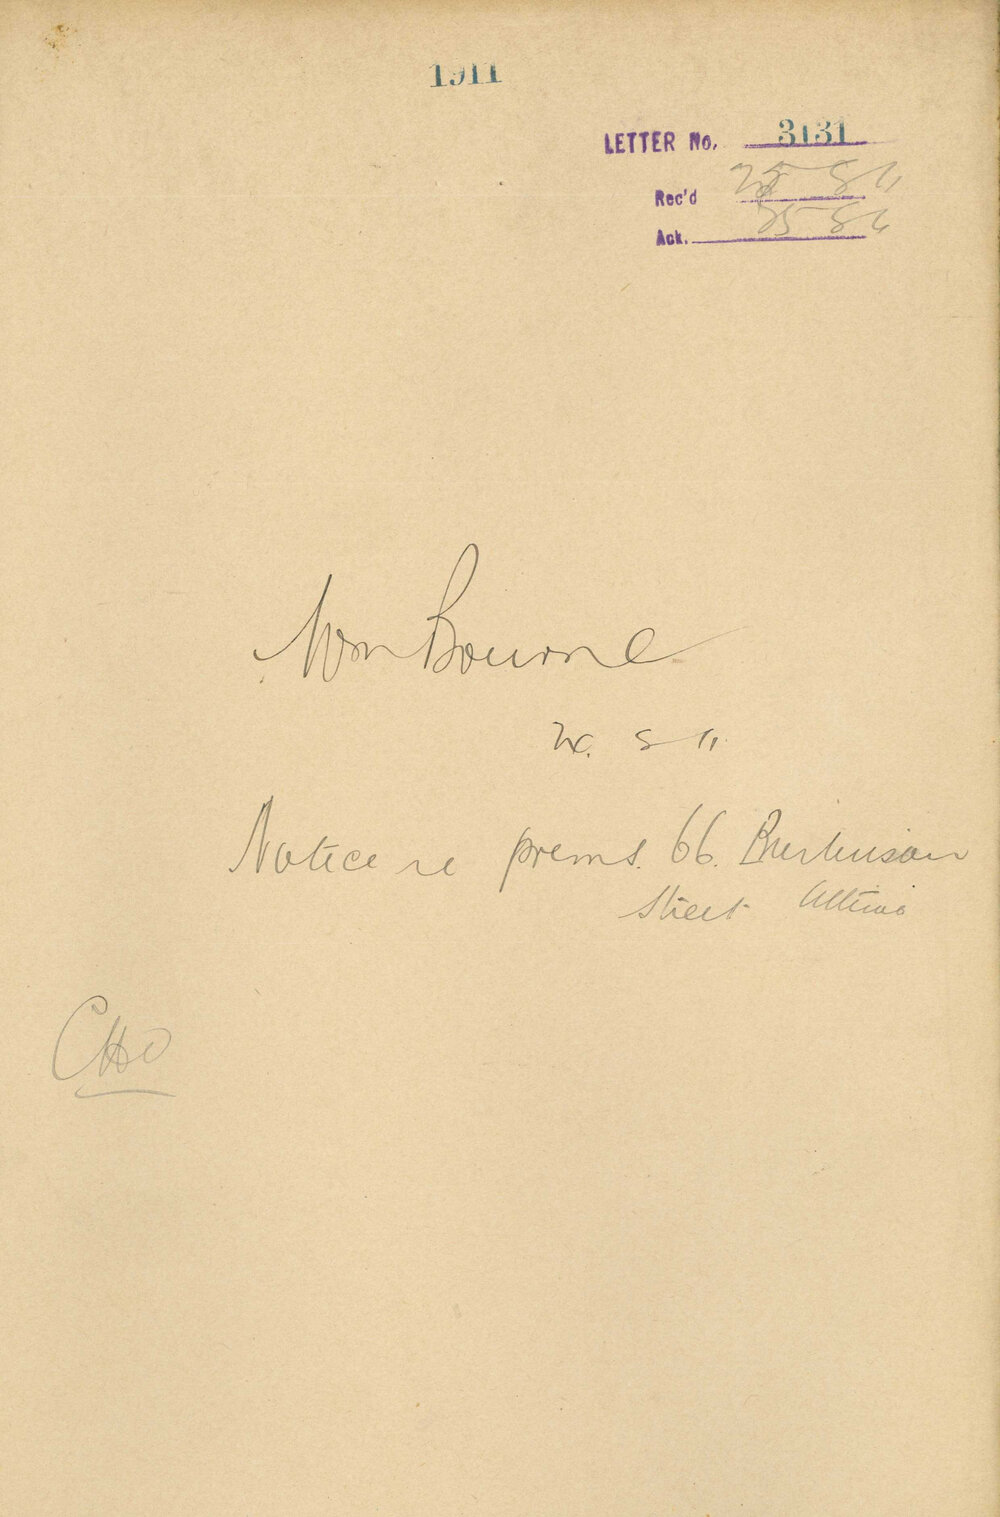 1911
LETTER No. 3131
Rec'd 25 8 11
Ack. 25 8 11
Wm Bourne
8 11
Notice re prems. 66.
Street
CHO